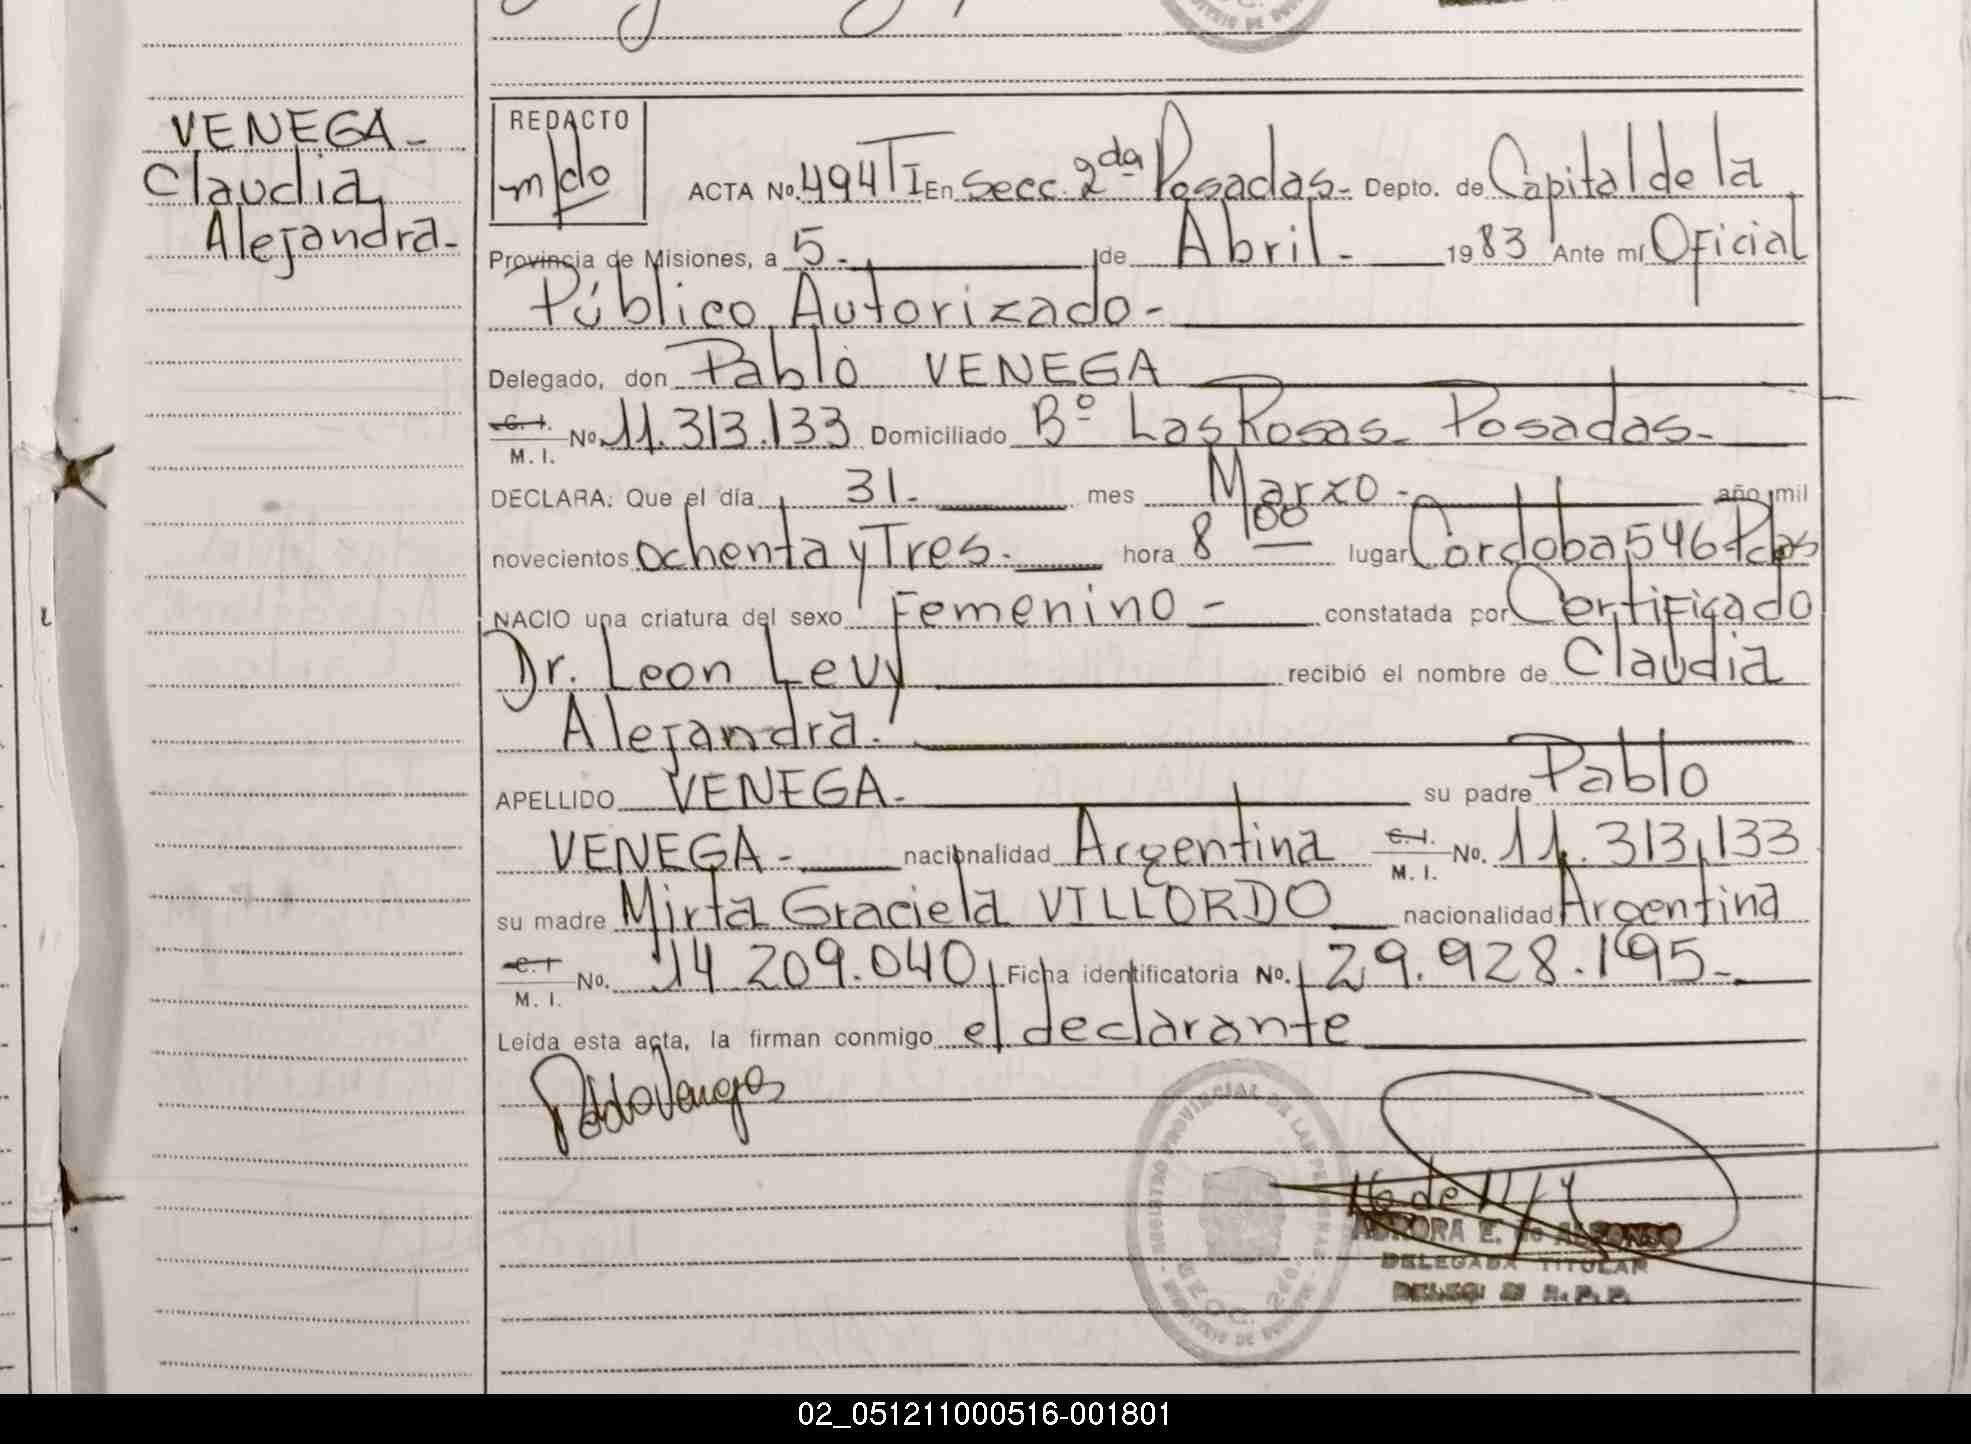 VENEGA-
Claudia
Alejandra-
REDACTO
ACTA Nº. 494 T I En Secc. 2da Posadas- Depto. de Capital de la
Provincia de Misiones, a 5.- de Abril.- 1983 Ante mí Oficial
Público Autorizado-
Delegado, don Pablo VENEGA
C. I. M. I. Nº 11.313.133 Domiciliado Bº Las Rosas- Posadas-
DECLARA: Que el día 31.- mes Marzo- año mil
novecientos ochenta y Tres.- hora 8 00 lugar Cordoba 546 Pdas
NACIO una criatura del sexo Femenino - constatada por Certificado
Dr. Leon Levy recibió el nombre de Claudia
Alejandra.-
APELLIDO VENEGA- su padre Pablo
VENEGA- nacionalidad Argentina C. I. M. I. No. 11.313,133
su madre Mirta Graciela VILLORDO nacionalidad Argentina
C. I M. I. No. 14 209.040 Ficha identificatoria No. 29.928.195-
Leída esta acta, la firman conmigo el declarante
REGISTRO PROVINCIAL DE LAS PERSONAS
SECC. 2da.
AURORA E. de ALFONSO
DELEGADA TITULAR
02_051211000516-001801